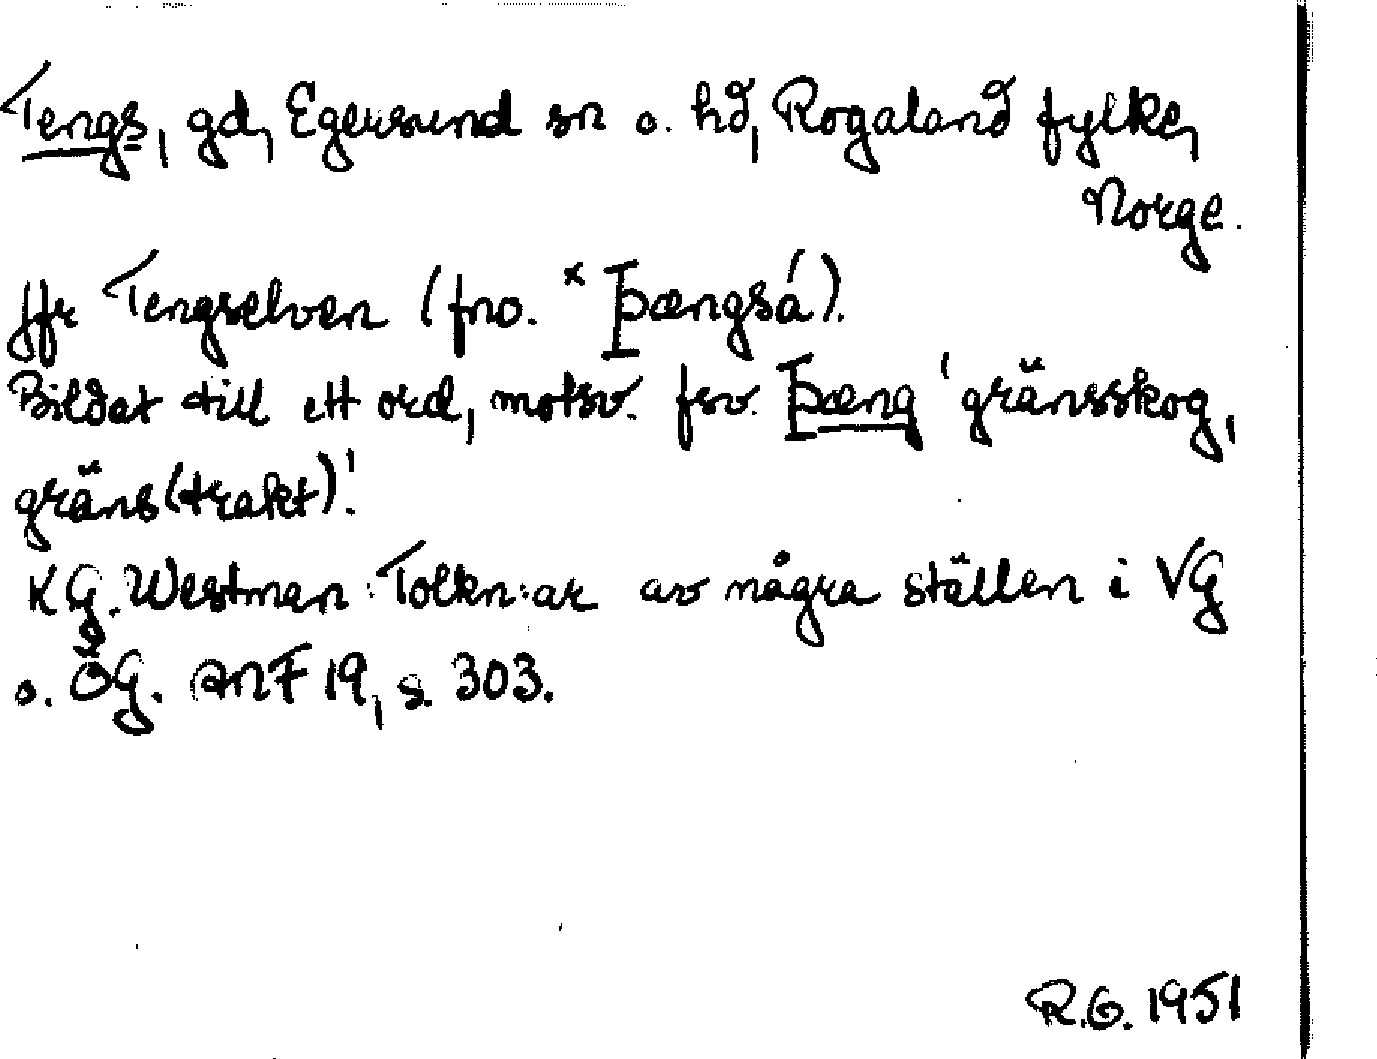 Tengs, gd, Egersund sn o. hd, Rogaland fylke,
Norge.
Jfr Tengselven (fno. *Þængsá).
Bildat till ett ord, motsv. fsv. Þæng 'gränsskog,
gräns(trakt)'.
KG. Westman: Tolkn:ar av några ställen i VG
o. ÖG. ANF 19, s. 303.
R.G. 1951